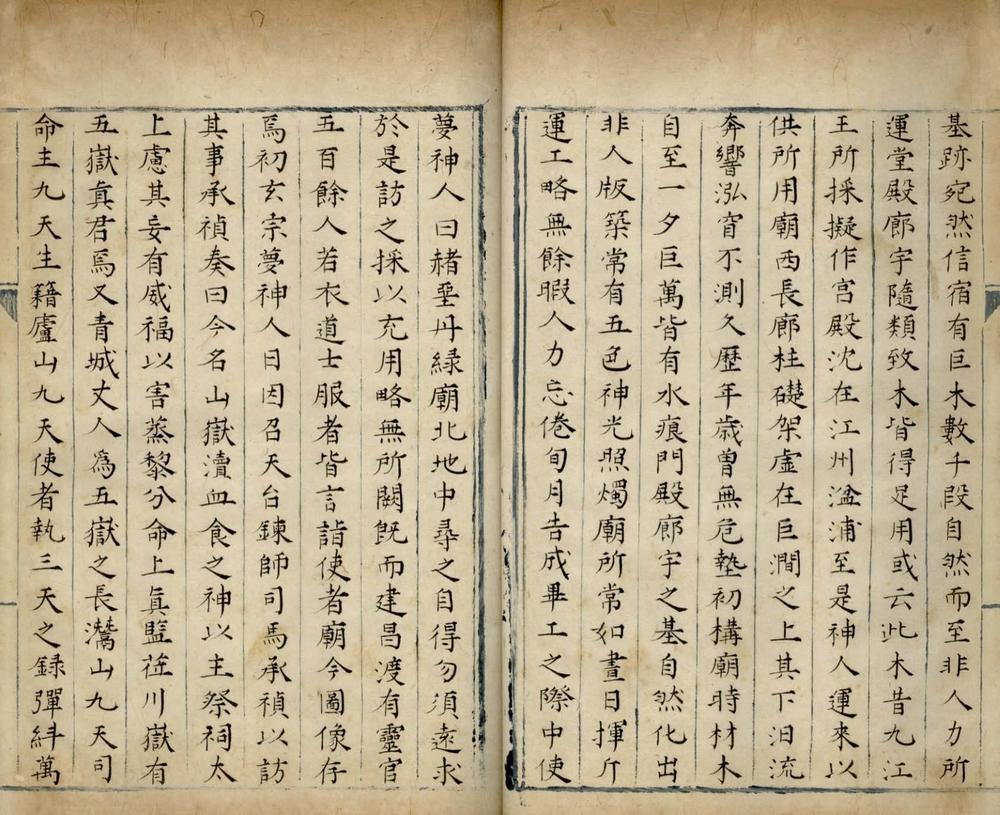 基跡宛然信宿有巨木數千段自然而至非人力所
運堂殿廊宇隨類致木皆得足用或云此木昔九江
王所採擬作宮殿沈在江州湓浦至是神人運來以
供所用廟西長廊柱礎架虛在巨澗之上其下汩流
奔響泓窅不測久歷年歲曾無危墊初構廟時材木
自至一夕巨萬皆有水痕門殿廊宇之基自然化出
非人版築常有五色神光照燭廟所常如晝日揮斤
運工略無餘暇人力忘倦旬月告成畢工之際中使
夢神人曰赭堊丹綠廟北地中尋之自得勿須遠求
於是訪之採以充用略無所闕既而建昌渡有靈官
五百餘人若衣道士服者皆言詣使者廟今圖像存
焉初玄宗夢神人日因召天台鍊師司馬承禎以訪
其事承禎奏曰今名山嶽瀆血食之神以主祭祠太
上慮其妄有威福以害蒸黎分命上真監莅川嶽有
五嶽真君焉又青城丈人為五嶽之長灊山九天司
命主九天生籍廬山九天使者執三天之録彈糾萬